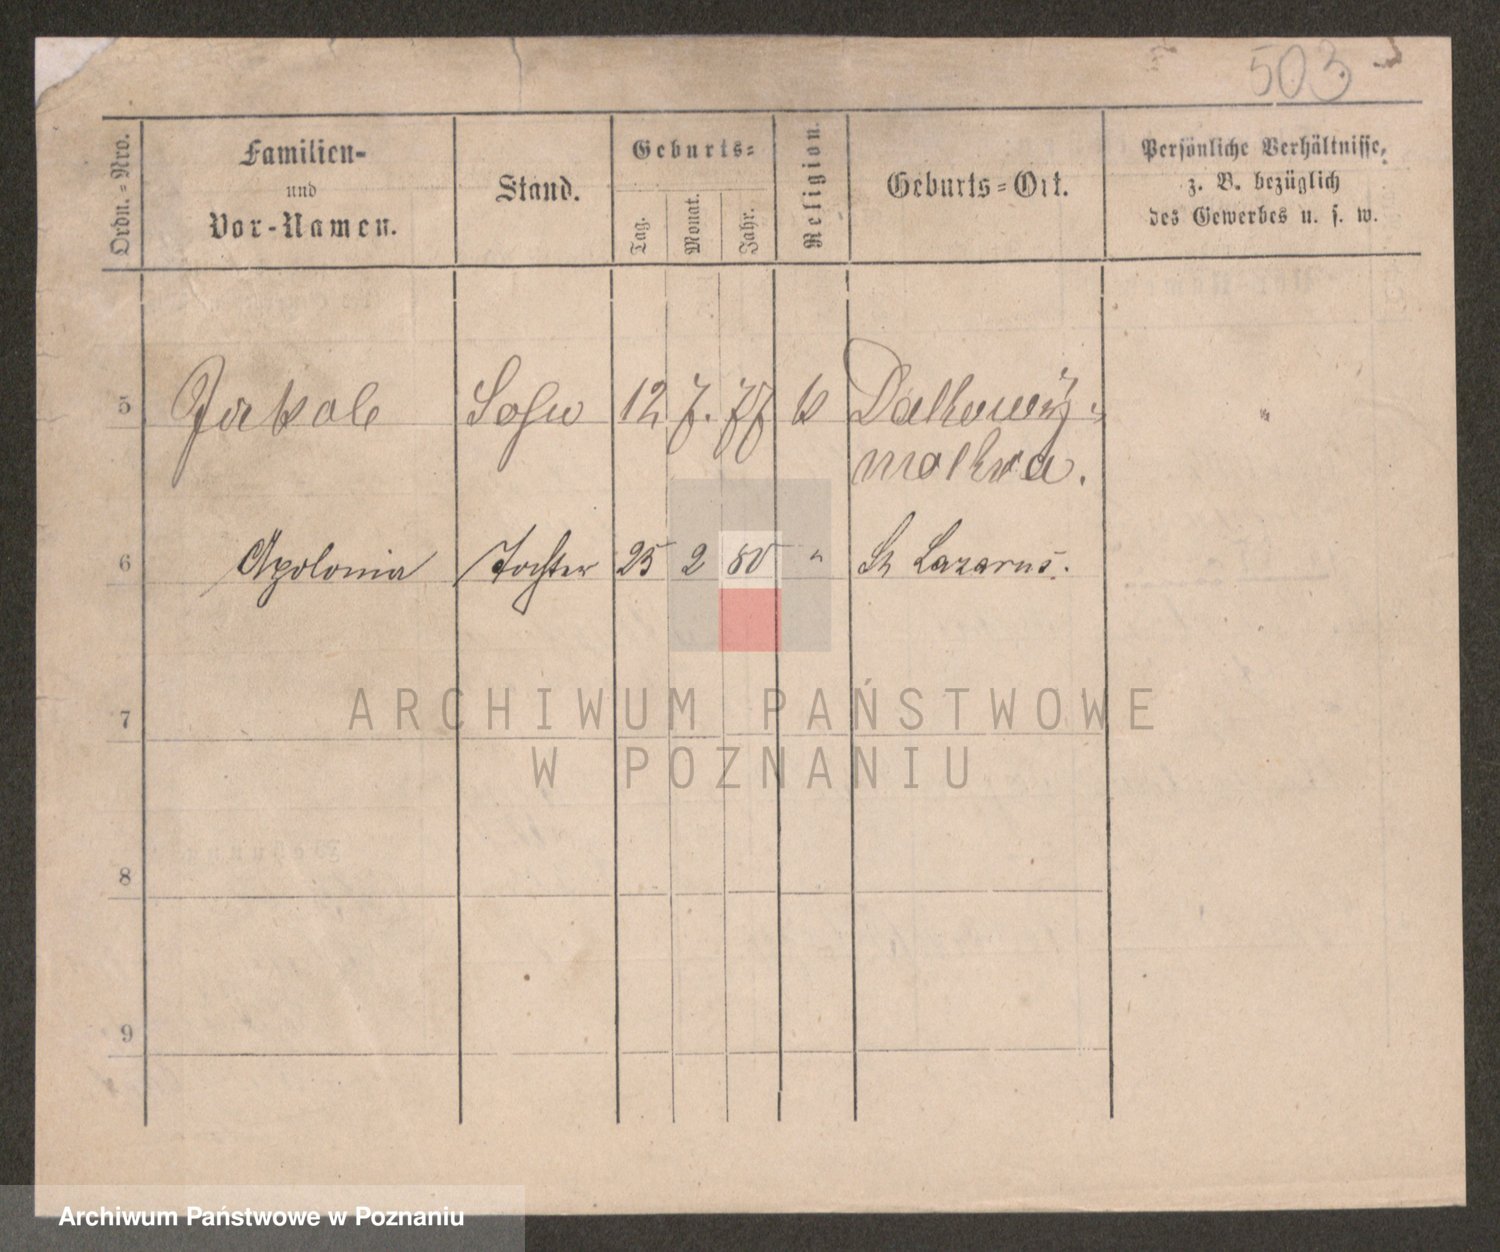 503
Ordn.-Nro.
Familien-
und
Vor-Namen.
Stand.
Geburts-
Tag.
Monat.
Jahr.
Religion.
Geburts-Ort.
Persönliche Verhältnisse,
z. B. bezüglich
des Gewerbes u. s. w.
5 Jakob Sohn 12 7. 77 k
"
6 Apolonia Tochter 25 2 80 " St Lazarus.
7
8
9
ARCHIWUM PAŃSTWOWE
W POZNANIU
Archiwum Państwowe w Poznaniu